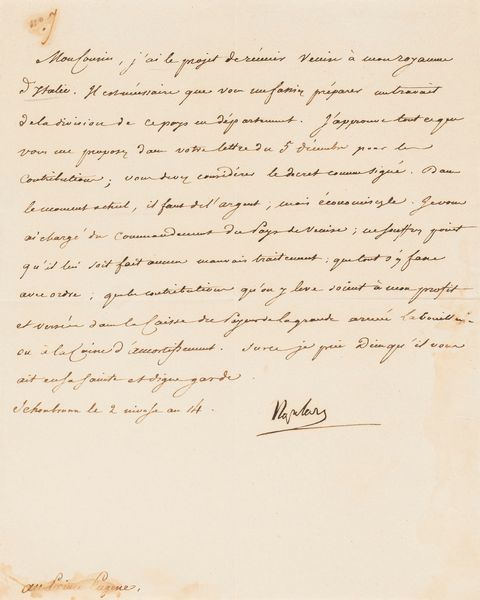 no. 7
Mon Cousin, j'ai le projet de réunir Venise à mon royaume
d'Italie. Il est nécessaire que vous me fassiez préparer un travail
de la division de ce pays en département. J'approuve tout ce que
vous me proposez dans votre lettre du 5 décembre pour les
Contributions; vous devez considérer le décret comme signé. Dans
le moment actuel, il faut de l'argent; mais économisez le. Je vous
ai chargé du Commandement du Pays de Venise; ne souffrez point
qu'il lui soit fait aucun mauvais traitement; que tout s'y fasse
avec ordre; que les contributions qu'on y lève soient à mon profit
et versées dans la Caisse du Payeur de la grande armée
ou à la Caisse d'amortissement. Sur ce je prie Dieu qu'il vous
ait en sa sainte et digne garde.
Schonbrunn le 2 nivose an 14.
Napoleon
au Prince Eugene.